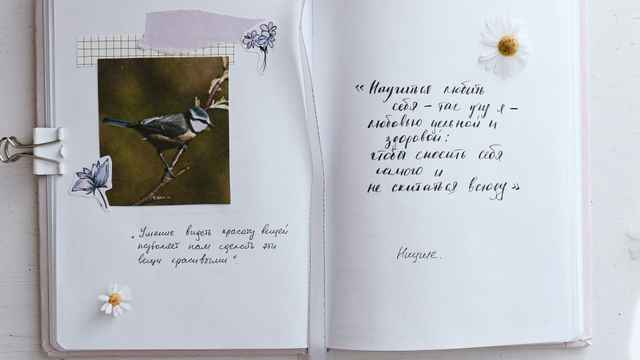 „Умение видеть красоту вещей
позволяет нам сделать эти
вещи красивыми“
«Научиться любить
себя – так учу я –
любовью цельной и
здоровой:
чтобы сносить себя
самого и
не скитаться всюду»
Ницше.